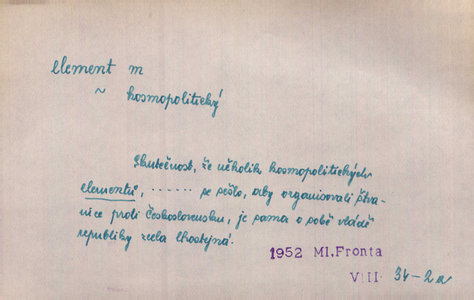 element m
~ kosmopolitický
Skutečnost, že několik kosmopolitických
elementů, ...... se sešlo, aby organisovali štva-
nice proti Československu, je sama o sobě vládě
republiky zcela lhostejná.
1952 Ml.Fronta
VIII 34-2a